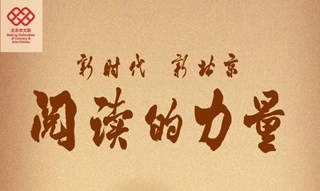 北京市文联
Beijing Federation
of Literary &
Arts Circles
新时代 新北京
阅读的力量